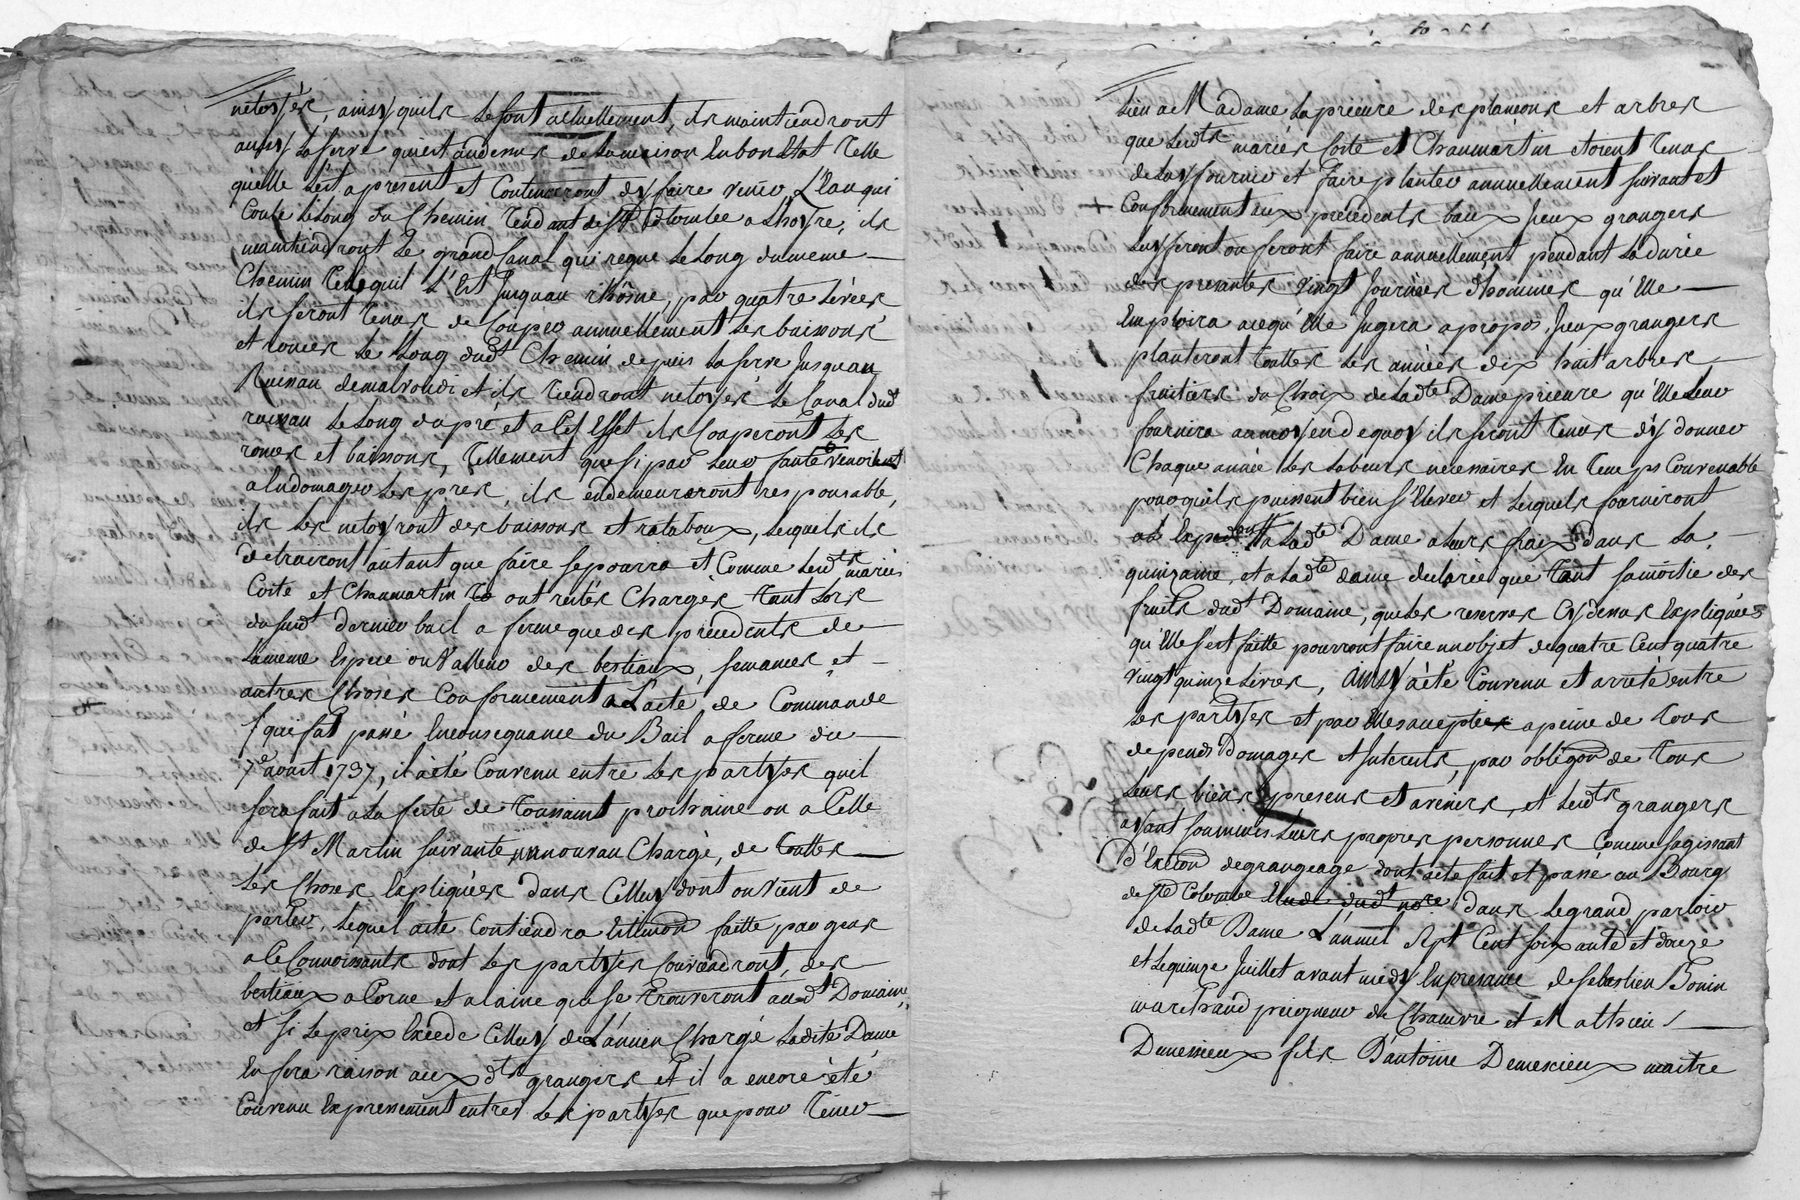 netoyér, ainsy quils le font actuellement, ils maintiendront
aussy la serve qui est audessus de la maison en bon Etat telle
qu'elle est a present et Continueront dy faire venir L'Eau qui
Coule le long du Chemin tendant de Ste Colombe a Lhoyre, ils
maintiendront le grand Canal qui regne le long du meme
Chemin tel quil L'Est jusquau rhône, par quatre Livres
ils seront tenus de Couper annuellement les buissons
et ronces le long dudt Chemin depuis la serve jusquau
Ruisseau demalroudi et ils tiendront netoyés le Canal dudt
ruisseau le long du pré et a Cet Effet ils Couperont les
ronces et buissons, tellement que si par leur faute venoient
a Endomager les pres, ils en demeureront responsable,
ils les netoyront des buissons et rataboux, lesquels ils
detruiront autant que faire se pourra et Comme lesdts mariés
Coste et Chaumartin ont restés Chargés tant lors
du susdt dernier bail a ferme que des precedents de
la meme Espece ou valleur des bestiaux, semances et
autres Choses Conformement a L'acte de Commande
qui fut passé En consequance du Bail a ferme du
7e aoust 1737, il a été Convenu entre les partyes quil
sera fait a la feste de toussaint prochaine ou a Celle
de St Martin suivante un nouveau Chargé, de toutes
les Choses Expliquées dans Celluy dont on vient de
parler, lequel acte Contiendra Estimon faitte par gens
a Ce Connoissants dont les partyes Conviendront, des
bestiaux a Corne et a laine qui se trouveront audt Domaine,
et si le prix Excede Celluy de L'ancien Chargé ladite Dame
En fera raison aux dts grangers et il a encore été
Convenu Expressement entre les partyes que pour tenir
Lieu a Madame la prieure des plançons et arbres
que lesdts mariés Coste et Chaumartin etoient tenus
de luy fournir et faire planter annuellement suivant et
Conformement aux precedents baux yeux grangers
luy feront ou feront faire annuellement pendant la durée
des presantes vingt journées d'hommes qu'Elle
Emploira a ce qu'Elle jugera a propos, yeux grangers
planteront toutes les années dix huit arbres
fruitiers du Choix de ladte Dame prieure qu'Elle leur
fournira au moyen de quoy ils seront tenus d'y donner
Chaque année les labeurs necessaires En temps Convenable
pour quils puissent bien s'Elever et lesquels fourniront
a ladte Dame a leurs frais dans la
quinzaine, et a ladte dame declarée que tant sa moitie des
fruits dudt Domaine, que les reserves Cydessus Expliquées
qu'Elle s'est faitte pourront faire un objet de quatre Cent quatre
vingt quinze Livres, ainsy a été Convenu et arreté entre
les partyes et par Elles accepté a peine de tous
depends Domages et Interests, par obligon de tous
leurs biens presens et avenirs, et lesdts grangers
ayant soummis leurs propres personnes Comme sagissant
d'Execon de grangeage dont acte fait et passé au Bourg
de Ste Colombe Etude dudt nore dans le grand parloir
de ladte Dame L'an mil sept Cent soixante et douze
et le quinze juillet avant midy En presance de Sebastien Bonin
marchand peigneur de Chanvre et Mathieu
Demessieux fils d'antoine Demessieux maitre